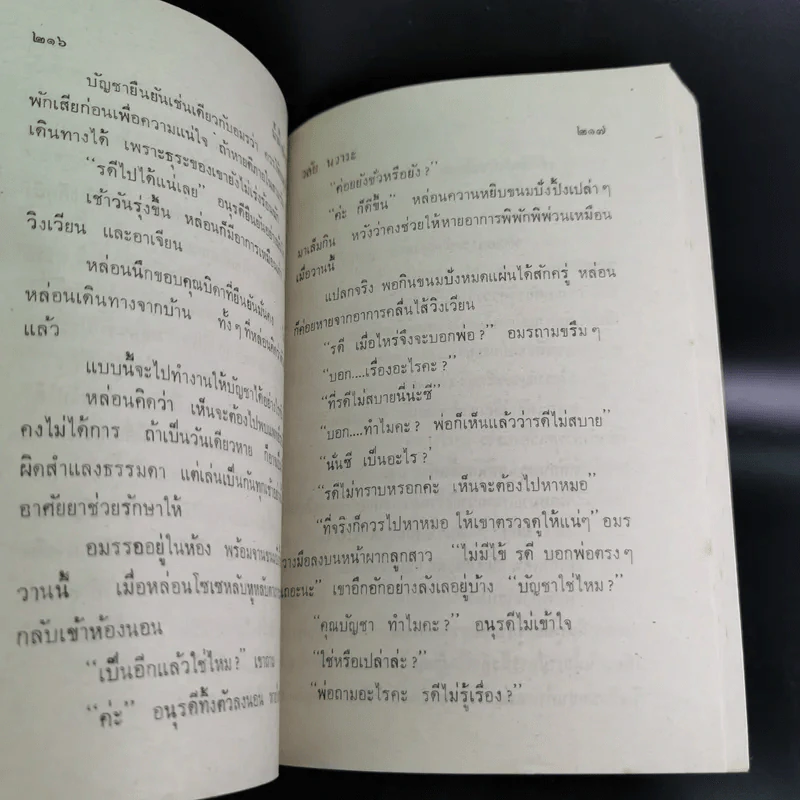 ๒๑๖
บัญชายืนยันเช่นเดียวกับอมรว่า
พักเสียก่อนเพื่อความแน่ใจ ถ้าหายดีภายใน
เดินทางได้ เพราะธุระของเขายังไม่เร่งร้อน
“รดีไปได้แน่เลย” อนุรดียืนยัน
เช้าวันรุ่งขึ้น หล่อนก็มีอาการเหมือน
วิงเวียน และอาเจียน
หล่อนนึกขอบคุณบิดาที่ยืนยันมั่นคง
หล่อนเดินทางจากบ้าน ทั้งๆ ที่หล่อน
แล้ว
แบบนี้จะไปทำงานให้บัญชาได้อย่างไร
หล่อนคิดว่า เห็นจะต้องไปพบ
คงไม่ได้การ ถ้าเป็นวันเดียวหาย ก็
ผิดสำแลงธรรมดา แต่เล่นเป็นกันทุกเช้า
อาศัยยาช่วยรักษาให้
อมรรออยู่ในห้อง พร้อมจานขนม
วานนี้ เมื่อหล่อนโซเซหลับหูหลับตา
กลับเข้าห้องนอน
“เป็นอีกแล้วใช่ไหม?” เขาถาม
“ค่ะ” อนุรดีทิ้งตัวลงนอน
วลัย นวาระ
๒๑๗
“ค่อยยังชั่วหรือยัง?”
“ค่ะ ก็ดีขึ้น” หล่อนควานหยิบขนมปังปิ้งเปล่าๆ
มาเล็มกิน หวังว่าคงช่วยให้หายอาการพิพักพิพ่วนเหมือน
เมื่อวานนี้
แปลกจริง พอกินขนมปังหมดแผ่นได้สักครู่ หล่อน
ก็ค่อยหายจากอาการคลื่นไส้วิงเวียน
“รดี เมื่อไหร่จึงจะบอกพ่อ?” อมรถามขรึมๆ
“บอก....เรื่องอะไรคะ?”
“ที่รดีไม่สบายนี่น่ะซี”
“บอก....ทำไมคะ? พ่อก็เห็นแล้วว่ารดีไม่สบาย”
“นั่นซี เป็นอะไร?”
“รดีไม่ทราบหรอกค่ะ เห็นจะต้องไปหาหมอ”
“ที่จริงก็ควรไปหาหมอ ให้เขาตรวจดูให้แน่ๆ” อมร
วางมือลงบนหน้าผากลูกสาว “ไม่มีไข้ รดี บอกพ่อตรงๆ
เถอะนะ” เขาอึกอักอย่างลังเลอยู่บ้าง “บัญชาใช่ไหม?”
“คุณบัญชา ทำไมคะ?” อนุรดีไม่เข้าใจ
“ใช่หรือเปล่าล่ะ?”
“พ่อถามอะไรคะ รดีไม่รู้เรื่อง?”